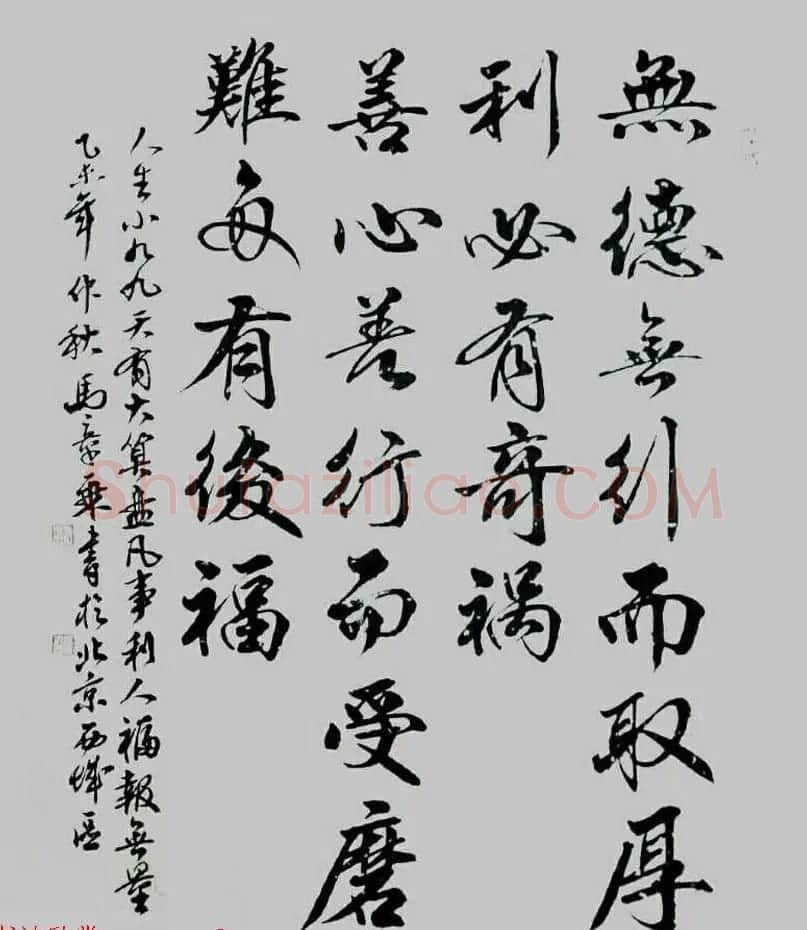 無德無行而取厚
利必有奇祸
善心善行而受磨
難每有後福
人生小九九天有大算盘凡事利人福報無量
乙未年作秋馬章乘書於北京西城區
Shufaziliao.COM